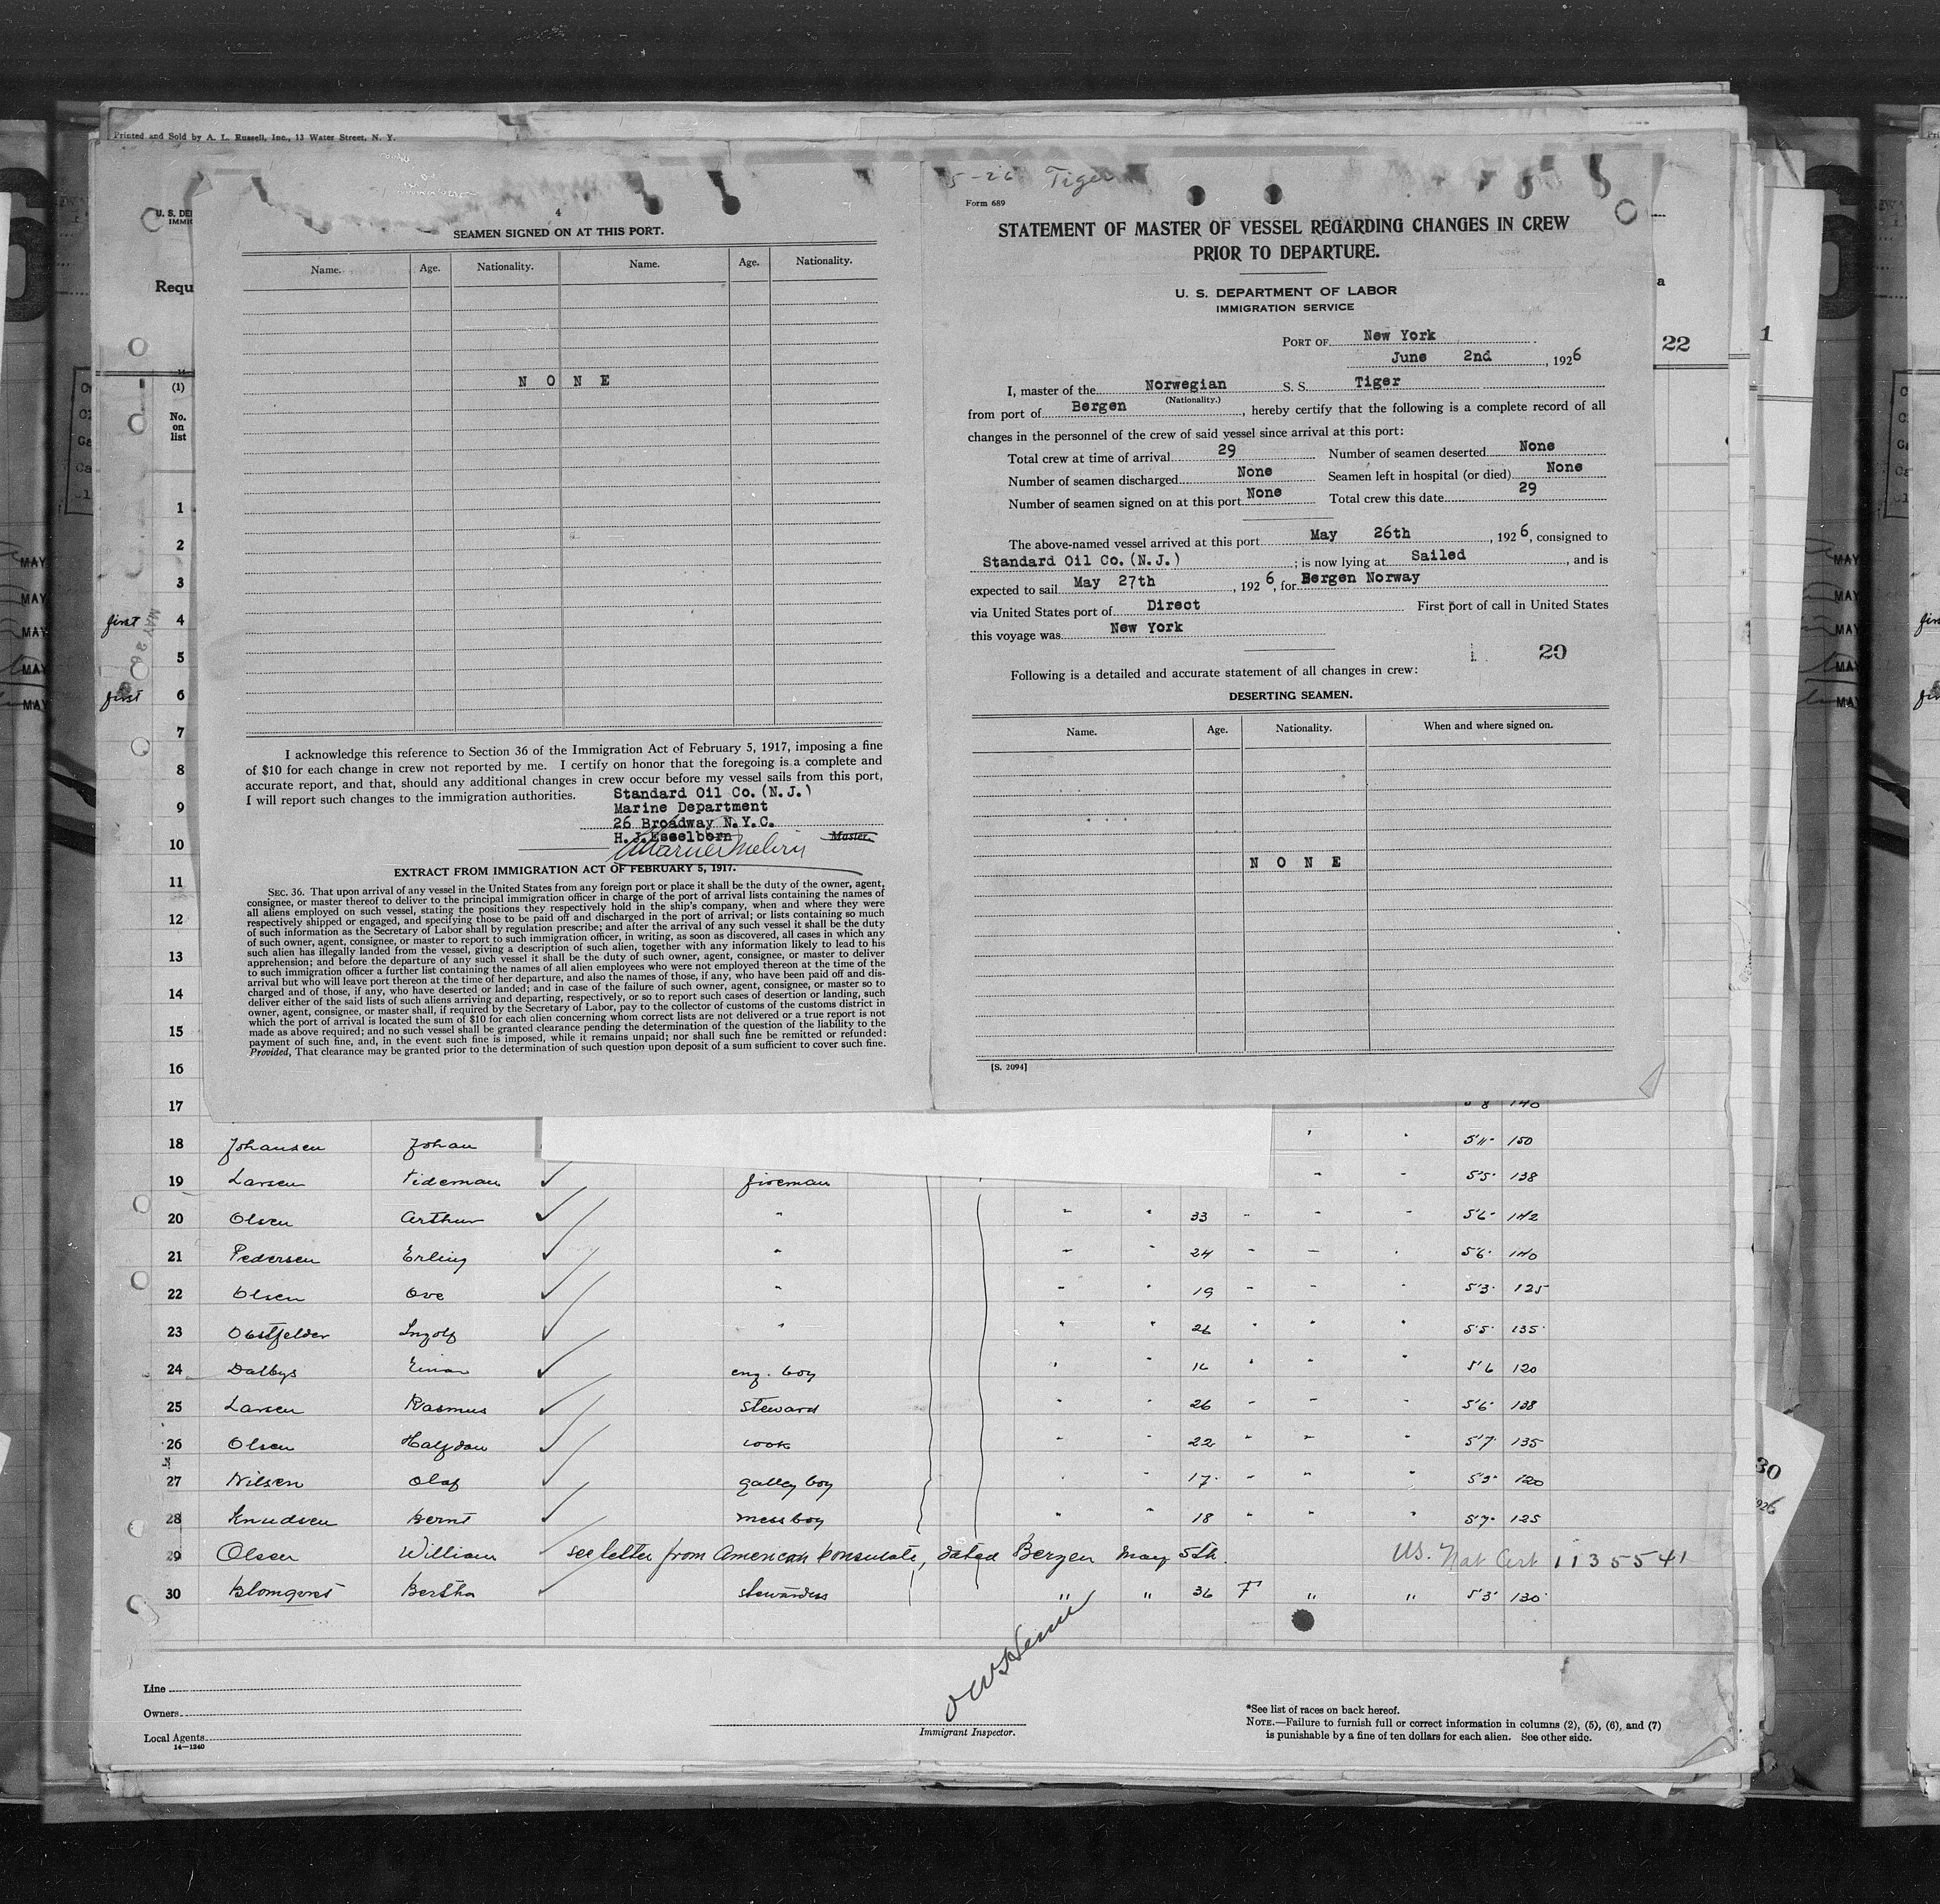 Printed and Sold by A. L. Russell, Inc., 13 Water Street, N. Y.
U. S. DE
IMMIG
Requ
(1)
No.
on
list
4
SEAMEN SIGNED ON AT THIS PORT.
Name. Age. Nationality. Name. Age. Nationality.
N O N E
I acknowledge this reference to Section 36 of the Immigration Act of February 5, 1917, imposing a fine
of $10 for each change in crew not reported by me. I certify on honor that the foregoing is a complete and
accurate report, and that, should any additional changes in crew occur before my vessel sails from this port,
I will report such changes to the immigration authorities.
Standard Oil Co.(N.J.)
Marine Department
26 Broadway N.Y.C.
H.J.Esselborn Master.
EXTRACT FROM IMMIGRATION ACT OF FEBRUARY 5, 1917.
SEC. 36. That upon arrival of any vessel in the United States from any foreign port or place it shall be the duty of the owner, agent,
consignee, or master thereof to deliver to the principal immigration officer in charge of the port of arrival lists containing the names of
all aliens employed on such vessel, stating the positions they respectively hold in the ship's company, when and where they were
respectively shipped or engaged, and specifying those to be paid off and discharged in the port of arrival; or lists containing so much
of such information as the Secretary of Labor shall by regulation prescribe; and after the arrival of any such vessel it shall be the duty
of such owner, agent, consignee, or master to report to such immigration officer, in writing, as soon as discovered, all cases in which any
such alien has illegally landed from the vessel, giving a description of such alien, together with any information likely to lead to his
apprehension; and before the departure of any such vessel it shall be the duty of such owner, agent, consignee, or master to deliver
to such immigration officer a further list containing the names of all alien employees who were not employed thereon at the time of the
arrival but who will leave port thereon at the time of her departure, and also the names of those, if any, who have been paid off and dis-
charged and of those, if any, who have deserted or landed; and in case of the failure of such owner, agent, consignee, or master so to
deliver either of the said lists of such aliens arriving and departing, respectively, or so to report such cases of desertion or landing, such
owner, agent, consignee, or master shall, if required by the Secretary of Labor, pay to the collector of customs of the customs district in
which the port of arrival is located the sum of $10 for each alien concerning whom correct lists are not delivered or a true report is not
made as above required; and no such vessel shall be granted clearance pending the determination of the question of the liability to the
payment of such fine, and, in the event such fine is imposed, while it remains unpaid; nor shall such fine be remitted or refunded:
Provided, That clearance may be granted prior to the determination of such question upon deposit of a sum sufficient to cover such fine.
5-26 Tiger
Form 689
STATEMENT OF MASTER OF VESSEL REGARDING CHANGES IN CREW
PRIOR TO DEPARTURE.
U. S. DEPARTMENT OF LABOR
IMMIGRATION SERVICE
PORT OF New York
June 2nd, 1926
I, master of the Norwegian S. S. Tiger
(Nationality.)
from port of Bergen, hereby certify that the following is a complete record of all
changes in the personnel of the crew of said vessel since arrival at this port:
Total crew at time of arrival 29 Number of seamen deserted None
Number of seamen discharged None Seamen left in hospital (or died) None
Number of seamen signed on at this port None Total crew this date 29
The above-named vessel arrived at this port May 26th, 1926, consigned to
Standard Oil Co.(N.J.); is now lying at Sailed, and is
expected to sail May 27th, 1926, for Bergen Norway
via United States port of Direct First port of call in United States
this voyage was New York
29
Following is a detailed and accurate statement of all changes in crew:
DESERTING SEAMEN.
Name. Age. Nationality. When and where signed on.
N O N E
[S. 2094]
a
22
1
1
2
3
first 4
5
first 6
7
8
9
10
11
12
13
14
15
16
17 5'8 140
18 Johansen Johan " " 5'11" 150
19 Larsen Tideman fireman " " 5'5" 138
20 Olsen Arthur " " " 33 " " " 5'6" 142
21 Pedersen Erling " " " 24 " " " 5'6" 140
22 Olsen Ove " " " 19 " " " 5'3" 125
23 Obstfelder Ingolf " " " 26 " " " 5'5" 135
24 Dalbys Einar eng. boy " " 16 " " " 5'6 120
25 Larsen Rasmus Steward " " 26 " " " 5'6" 138
26 Olsen Halfdan cook " " 22 " " " 5'7" 135
27 Nilsen Olaf galley boy " " 17 " " " 5'3" 120
28 Knudsen Bernt messboy " " 18 " " " 5'7" 125
29 Olsen William see letter from American Consulate, dated Bergen May 5th. US. Nat Cert 1135541
30 Blomqvist Bertha Stewardess " " 36 F " " 5'3" 130
30
Line
Owners
Local Agents
14-1240
Immigrant Inspector.
*See list of races on back hereof.
NOTE.—Failure to furnish full or correct information in columns (2), (5), (6), and (7)
is punishable by a fine of ten dollars for each alien. See other side.
MAY
MAY
MAY
MAY
MAY